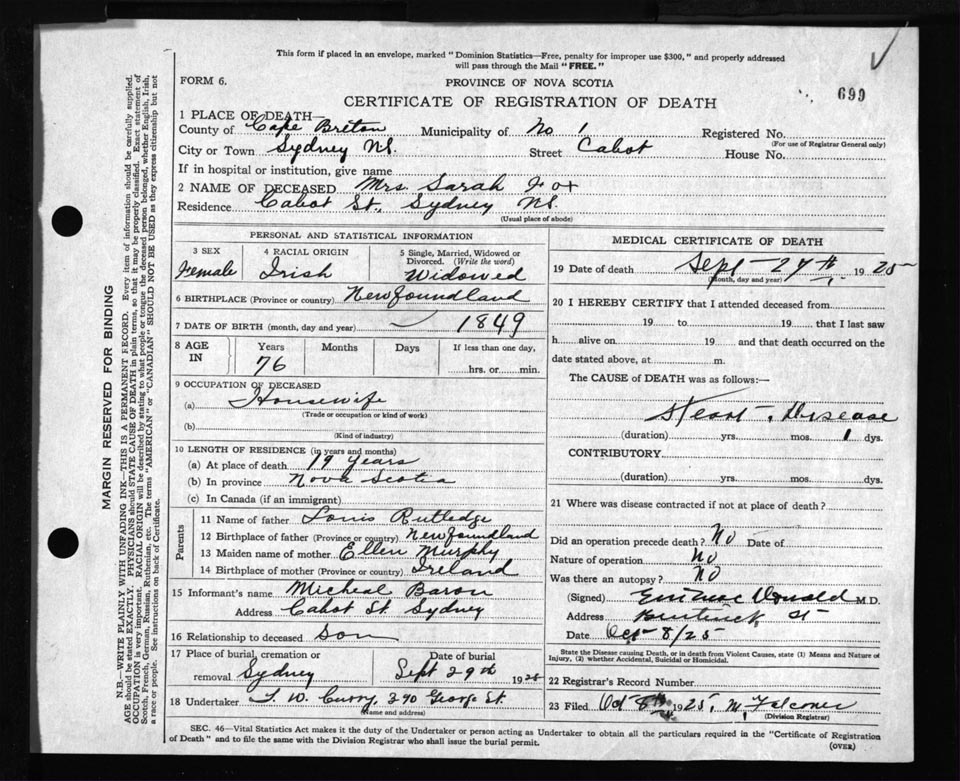 This form if placed in an envelope, marked "Dominion Statistics—Free, penalty for improper use $300," and properly addressed
will pass through the Mail "FREE."
FORM 6.
PROVINCE OF NOVA SCOTIA
699
CERTIFICATE OF REGISTRATION OF DEATH
1 PLACE OF DEATH—
County of Cape Breton Municipality of No 1 Registered No.
(For use of Registrar General only)
City or Town Sydney N.S. Street Cabot House No.
If in hospital or institution, give name
2 NAME OF DECEASED Mrs Sarah Fox
Residence Cabot St., Sydney N.S.
(Usual place of abode)
PERSONAL AND STATISTICAL INFORMATION
3 SEX 4 RACIAL ORIGIN 5 Single, Married, Widowed or
Divorced. (Write the word)
Female Irish Widowed
6 BIRTHPLACE (Province or country) Newfoundland
7 DATE OF BIRTH (month, day and year) 1849
8 AGE IN Years Months Days If less than one day,
76 hrs. or min.
9 OCCUPATION OF DECEASED
(a) Housewife
(Trade or occupation or kind of work)
(b)
(Kind of industry)
10 LENGTH OF RESIDENCE (in years and months)
(a) At place of death 19 years
(b) In province Nova Scotia
(c) In Canada (if an immigrant)
Parents
11 Name of father Louis Rutledge
12 Birthplace of father (Province or country) Newfoundland
13 Maiden name of mother Ellen Murphy
14 Birthplace of mother (Province or country) Ireland
15 Informant's name Micheal Baron
Address Cabot St. Sydney
16 Relationship to deceased Son
17 Place of burial, cremation or Date of burial
removal Sydney Sept 29th 1925
18 Undertaker F. W. Curry, 390 George St.
(Name and address)
MEDICAL CERTIFICATE OF DEATH
19 Date of death Sept 27th, 1925
(month, day and year)
20 I HEREBY CERTIFY that I attended deceased from
19 to 19 that I last saw
h alive on 19 and that death occurred on the
date stated above, at m.
The CAUSE of DEATH was as follows:—
Heart Disease
(duration) yrs. mos. 1 dys.
CONTRIBUTORY
(duration) yrs. mos. dys.
21 Where was disease contracted if not at place of death?
Did an operation precede death? No Date of
Nature of operation No
Was there an autopsy? No
(Signed) Donald M.D.
Address St
Date Oct 8/25
State the Disease causing Death, or in death from Violent Causes, state (1) Means and Nature of
Injury, (2) whether Accidental, Suicidal or Homicidal.
22 Registrar's Record Number
23 Filed Oct 8th 1925, M. Falconer
(Division Registrar)
SEC. 46—Vital Statistics Act makes it the duty of the Undertaker or person acting as Undertaker to obtain all the particulars required in the "Certificate of Registration
of Death" and to file the same with the Division Registrar who shall issue the burial permit.
(OVER)
MARGIN RESERVED FOR BINDING
N.B.—WRITE PLAINLY WITH UNFADING INK—THIS IS A PERMANENT RECORD. Every item of information should be carefully supplied.
AGE should be stated EXACTLY. PHYSICIANS should STATE CAUSE OF DEATH in plain terms, so that it may be properly classified. Exact statement of
OCCUPATION is very important. RACIAL ORIGIN will be described by stating to what people or tongue the deceased person belonged, whether English, Irish,
Scotch, French, German, Russian, Ruthenian, etc. The terms "AMERICAN" or "CANADIAN" SHOULD NOT BE USED as they express citizenship but not
a race or people. See instructions on back of Certificate.